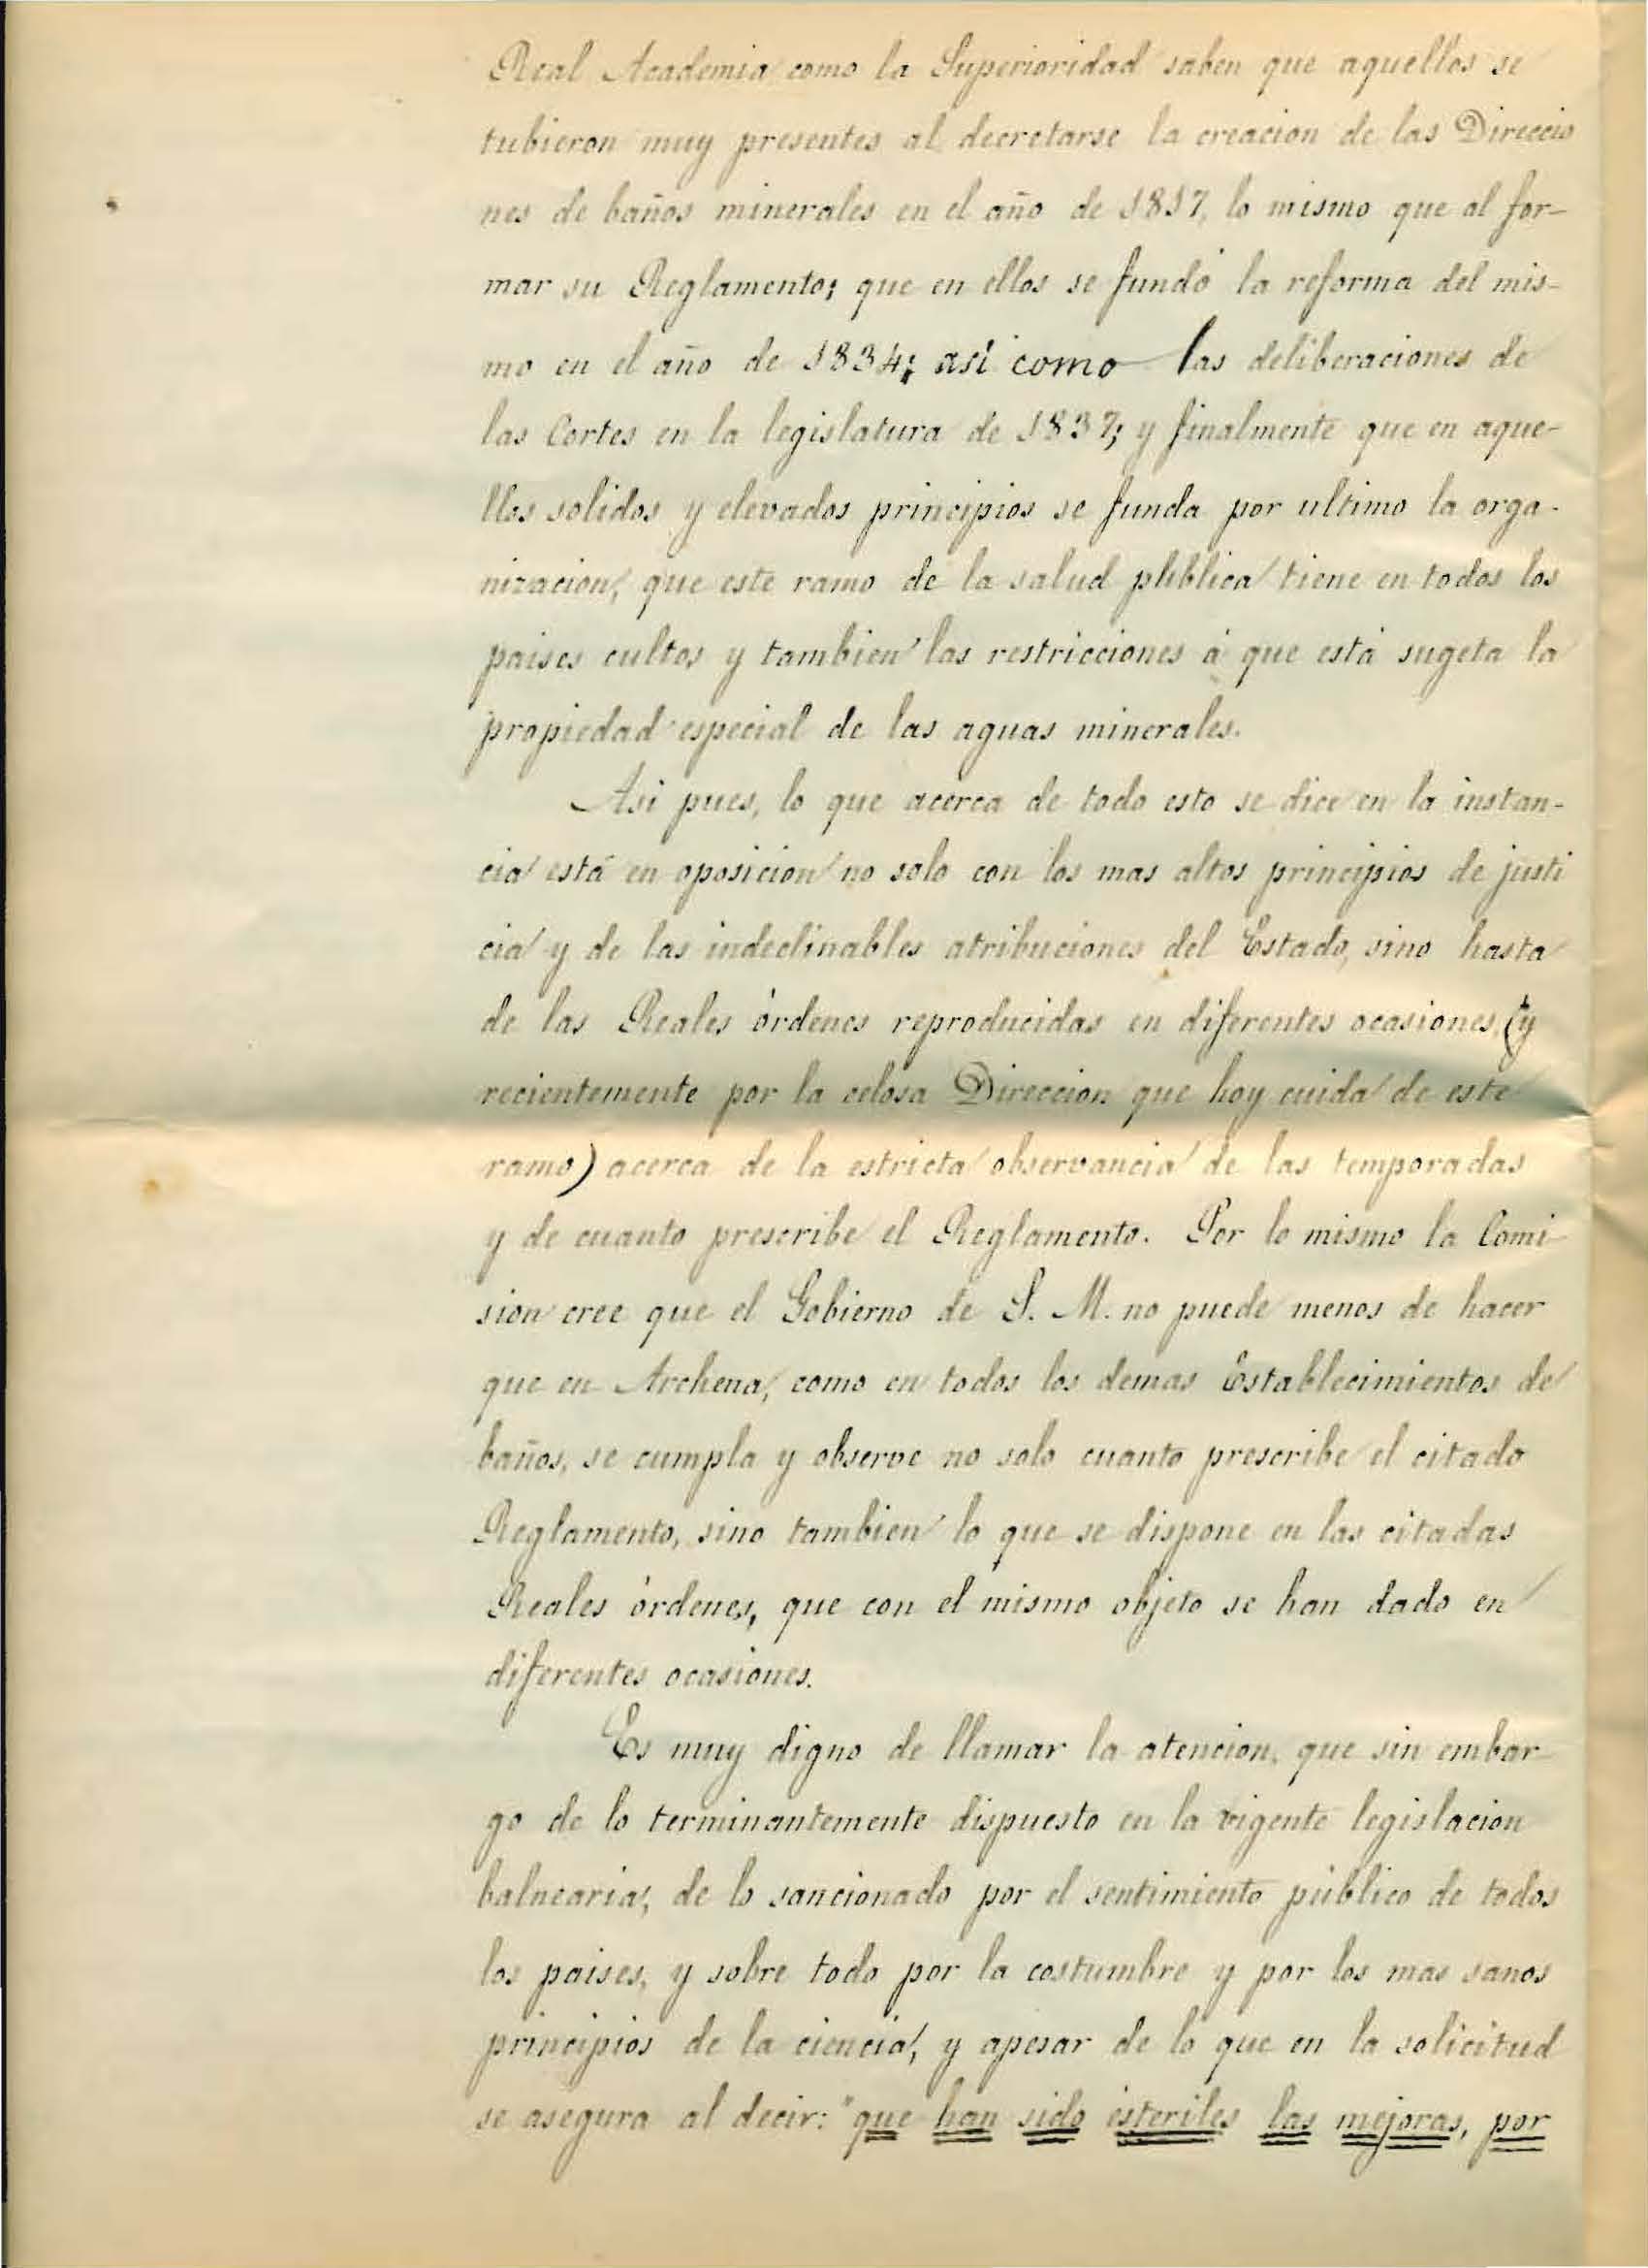 Real Academia como la Superioridad saben que aquellos se
tubieron muy presentes al decretarse la creacion de las Direccio
nes de baños minerales en el año de 1817, lo mismo que al for-
mar su Reglamento; que en ellos se fundó la reforma del mis-
mo en el año de 1834; asi como las deliberaciones de
las Cortes en la legislatura de 1837; y finalmente que en aque-
llos solidos y elevados principios se funda por ultimo la orga-
nizacion, que este ramo de la salud pública tiene en todos los
paises cultos y tambien las restricciones á que está sugeta la
propiedad especial de las aguas minerales.
Asi pues, lo que acerca de todo esto se dice en la instan-
cia está en oposicion no solo con los mas altos principios de justi
cia y de las indeclinables atribuciones del Estado, sino hasta
de las Reales órdenes reproducidas en diferentes ocasiones, (y
recientemente por la celosa Direccion que hoy cuida de este
ramo) acerca de la estricta observancia de las temporadas
y de cuanto prescribe el Reglamento. Por lo mismo la Comi
sion cree que el Gobierno de S. M. no puede menos de hacer
que en Archena, como en todos los demas Establecimientos de
baños, se cumpla y observe no solo cuanto prescribe el citado
Reglamento, sino tambien lo que se dispone en las citadas
Reales órdenes, que con el mismo objeto se han dado en
diferentes ocasiones.
Es muy digno de llamar la atencion, que sin embar
go de lo terminantemente dispuesto en la vigente legislacion
balnearia, de lo sancionado por el sentimiento público de todos
los paises, y sobre todo por la costumbre y por los mas sanos
principios de la ciencia, y apesar de lo que en la solicitud
se asegura al decir: "que han sido ésteriles las mejoras, por